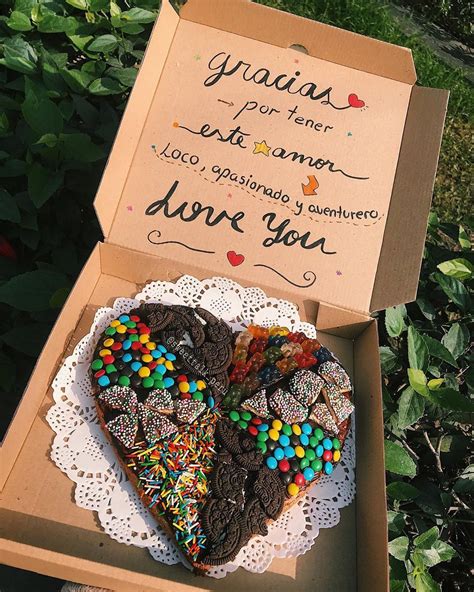 gracias
por tener
este amor
LOCO, apasionado y aventurero
Love You